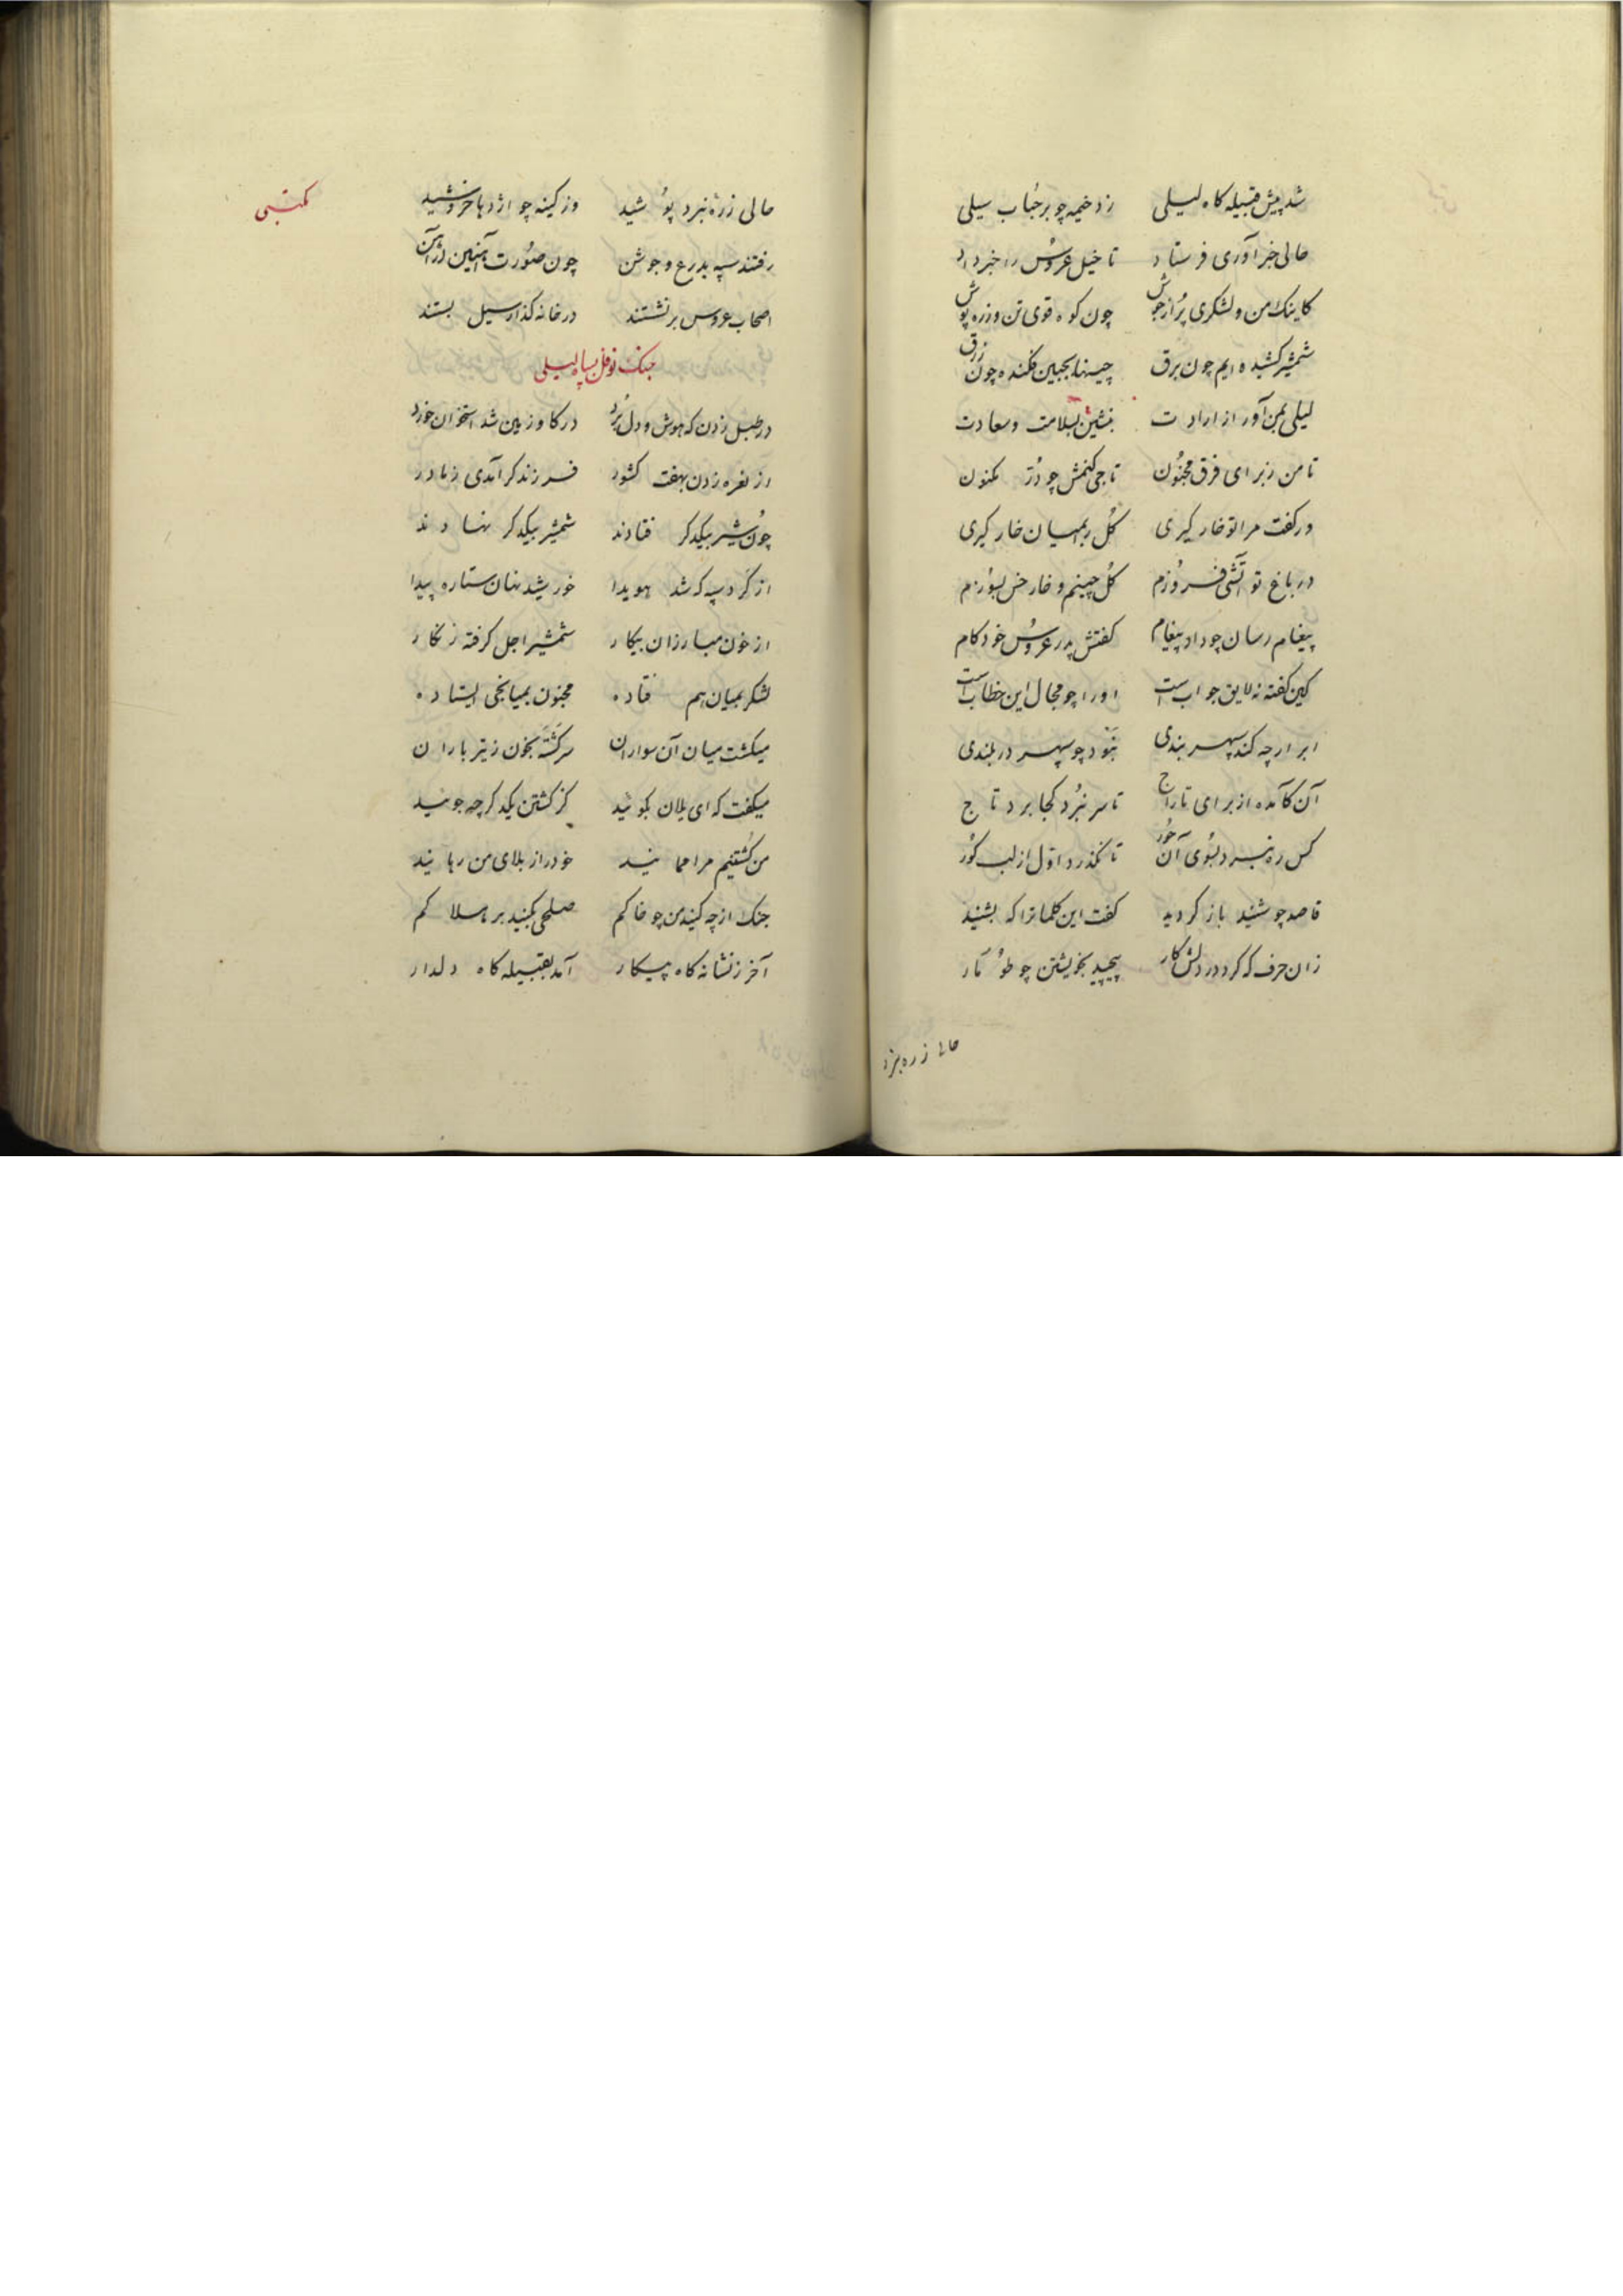 شد پیش قبیله کاه لیلی زد خیمه چو بر حباب سیلی
حالی خبر آوری فرستاد تا خیل عروس را خبر داد
کاینک من و لشکری پر از جوش چون کوه قوی تن و زره پوش
شمشیر کشیده ایم چون برق چینها بجبین فکنده چون زرق
لیلی بمن آور از ارادت بنشین بسلامت و سعادت
تا من ز برای فرق مجنون تاجی کنمش چو در مکنون
ور کفت مرا تو خار کیری کل را بمیان خار کیری
در باغ تو آتشی فروزم کل چینم و خار خس بسوزم
پیغام رسان چو داد پیغام کفتش پدر عروس خود کام
کین کفته نه لایق جوابست او را چو مجال این خطابست
ابر ارچه کند سپهر بندی نبود چو سپهر در بلندی
آن کآمده از برای تاراج تا سر نبرد کجا برد تاج
کس ره نبرد بسوی آن حور تا نکذرد اول از لب کور
قاصد چو شنید باز کردید کفت این کلمات را که بشنید
زان حرف که کرد در دلش کار پیچید بخویشتن چو طومار
حالی زره نبرد
مکتبی
حالی زره نبرد پوشید وز کینه چو اژدها خروشید
رفتند سپه بدرع و جوشن چون صورت آهنین در آهن
اصحاب عروس بر نشستند در خانه کذار سیل بستند
جنک نوفل بسپاه لیلی
در طبل زدن که هوش و دل برد در کاو زمین شد استخوان خورد
از نعره زدن بهفت کشور فرزند کر آمدی ز مادر
چون شیر بیکدکر فتادند شمشیر بیکدکر نهادند
از کرد سپه که شد هویدا خورشید نهان ستاره پیدا
از خون مبارزان بیکار شمشیر اجل کرفته زنکار
لشکر بمیان هم فتاده مجنون بمیانجی ایستاده
میکشت میان آن سواران سر کشته بخون ز تیر باران
میکفت که ای یلان بکوئید کز کشتن یکدکر چه جوئید
من کشتنیم مرا نمائید خود را ز بلای من رهانید
جنک از چه کنید من چو خاکم صلحی بکنید بر هلاکم
آخر ز نشانه کاه پیکار آمد بقبیله کاه دلدار